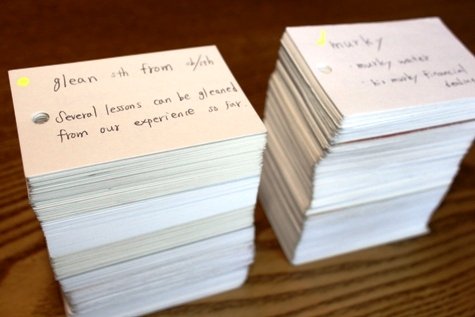 glean sth from sb/sth
Several lessons can be gleaned
from our experience so far.
murky
· murky water
murky financial